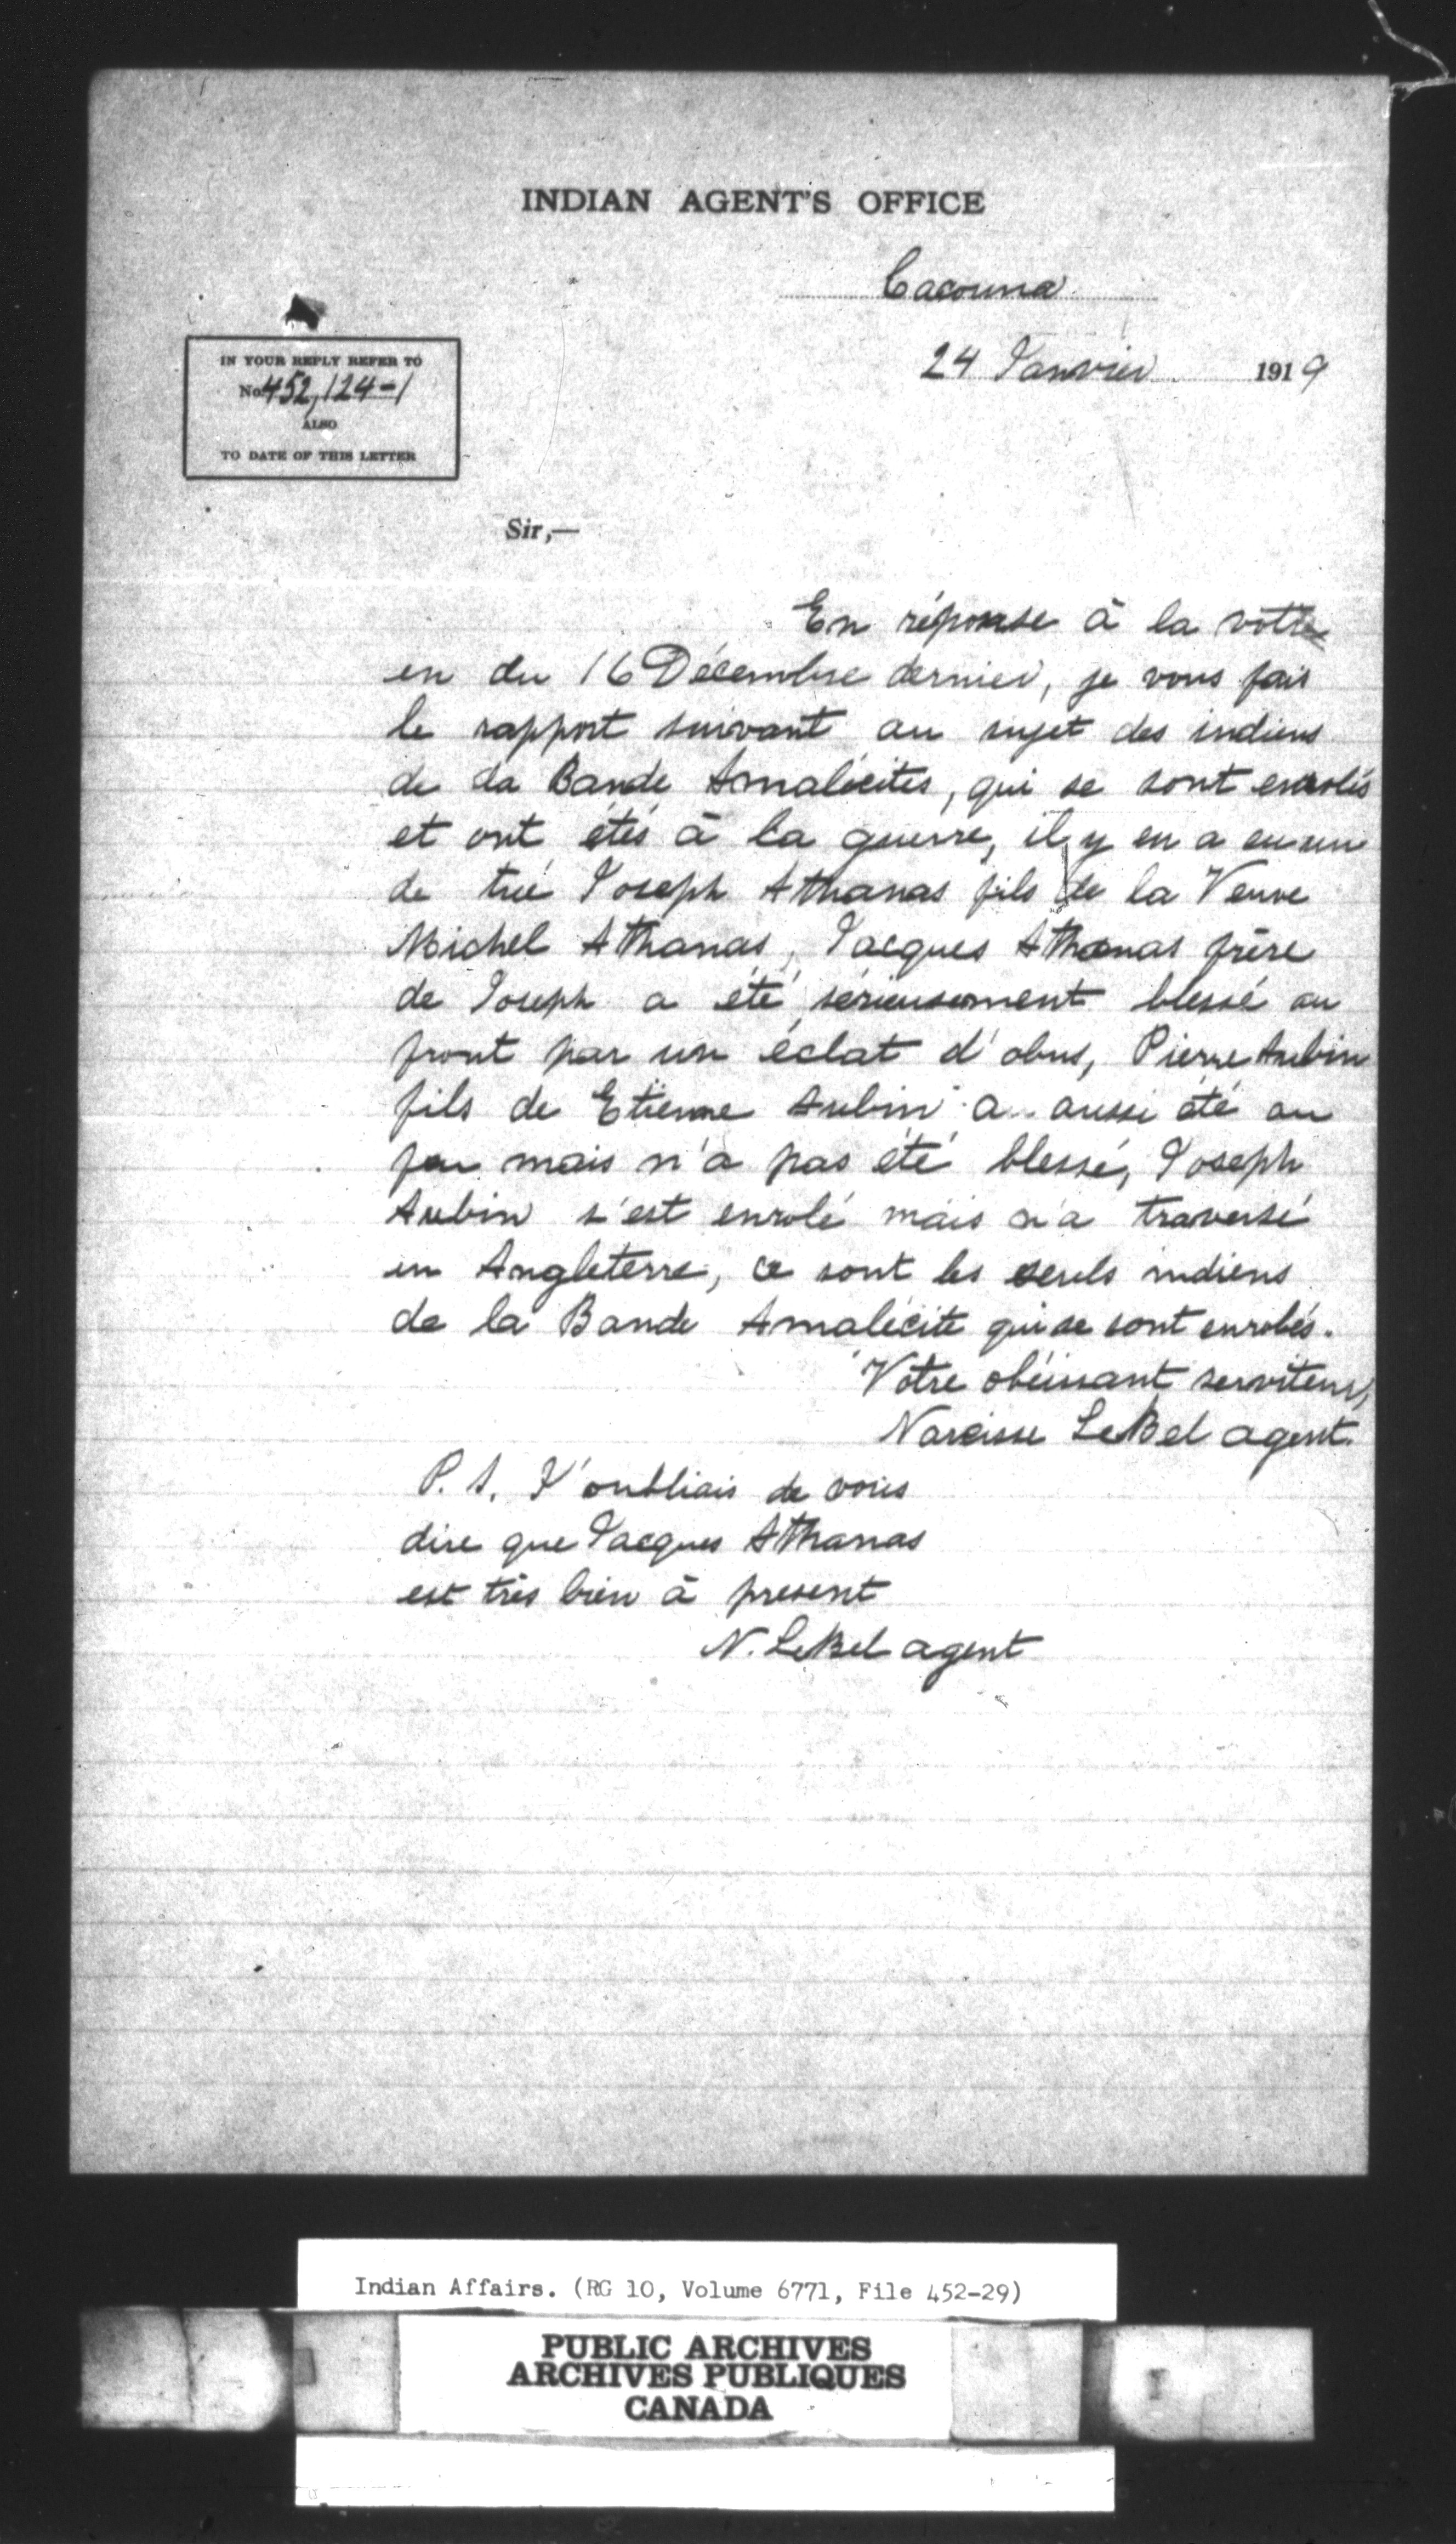 INDIAN AGENT'S OFFICE
Cacouna
24 Janvier 1919
IN YOUR REPLY REFER TO
No. 452,124-1
ALSO
TO DATE OF THIS LETTER
Sir,—
En réponse à la votre
en du 16 Décembre dernier, je vous fais
le rapport suivant au sujet des indiens
de la Bande Amalécites, qui se sont enrolés
et ont étés à la guerre, il y en a eu un
de tué Joseph Athanas fils de la Veuve
Michel Athanas, Jacques Athanas frère
de Joseph a été sérieusement blessé au
front par un éclat d'obus, Pierre Aubin
fils de Etienne Aubin a aussi été au
feu mais n'a pas été blessé, Joseph
Aubin s'est enrolé mais n'a traversé
en Angleterre, ce sont les seuls indiens
de la Bande Amalécite qui se sont enrolés.
Votre obéissant serviteur,
Narcisse LeBel agent.
P.S. J'oubliais de vous
dire que Jacques Athanas
est très bien à présent
N. LeBel agent
Indian Affairs. (RG 10, Volume 6771, File 452-29)
PUBLIC ARCHIVES
ARCHIVES PUBLIQUES
CANADA